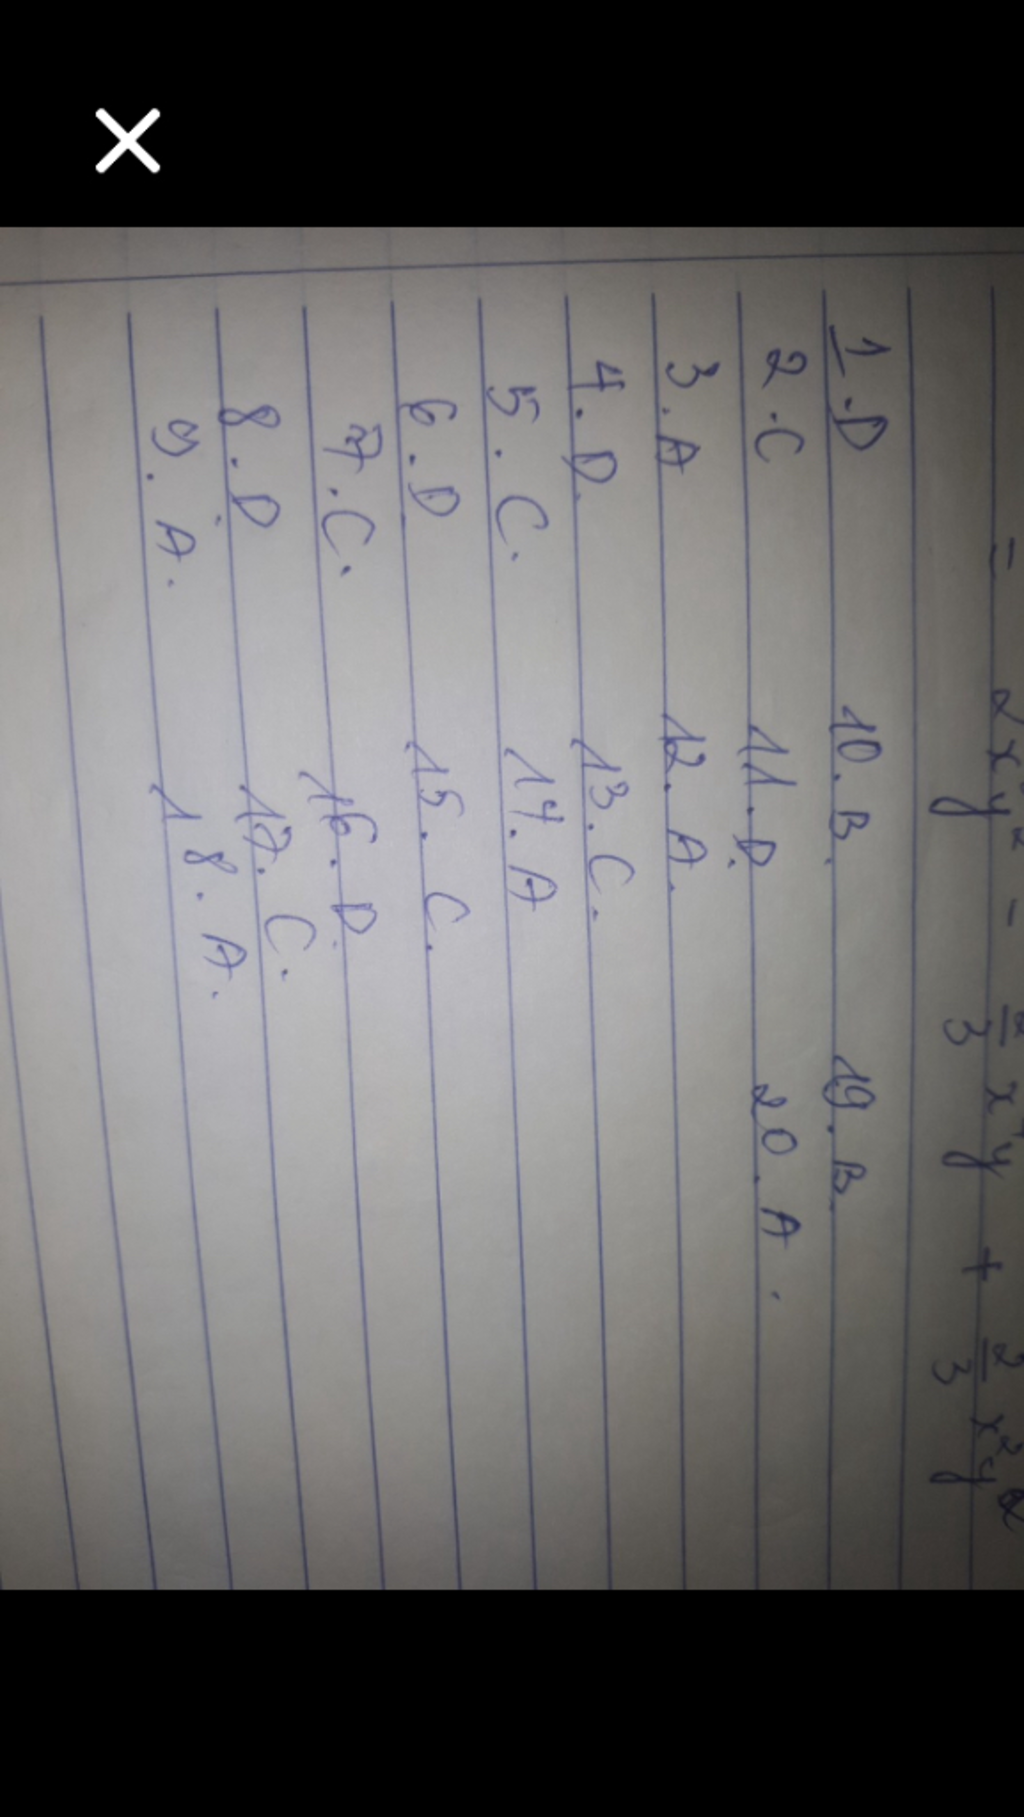 = 2x³y² - 2/3 x⁴y + 2/3 x²y²
1.D 10.B. 19.B.
2.C 11.D. 20.A.
3.A 12.A.
4.D. 13.C.
5.C. 14.A
6.D 15.C.
7.C. 16.D.
8.D 17.C.
9.A. 18.A.